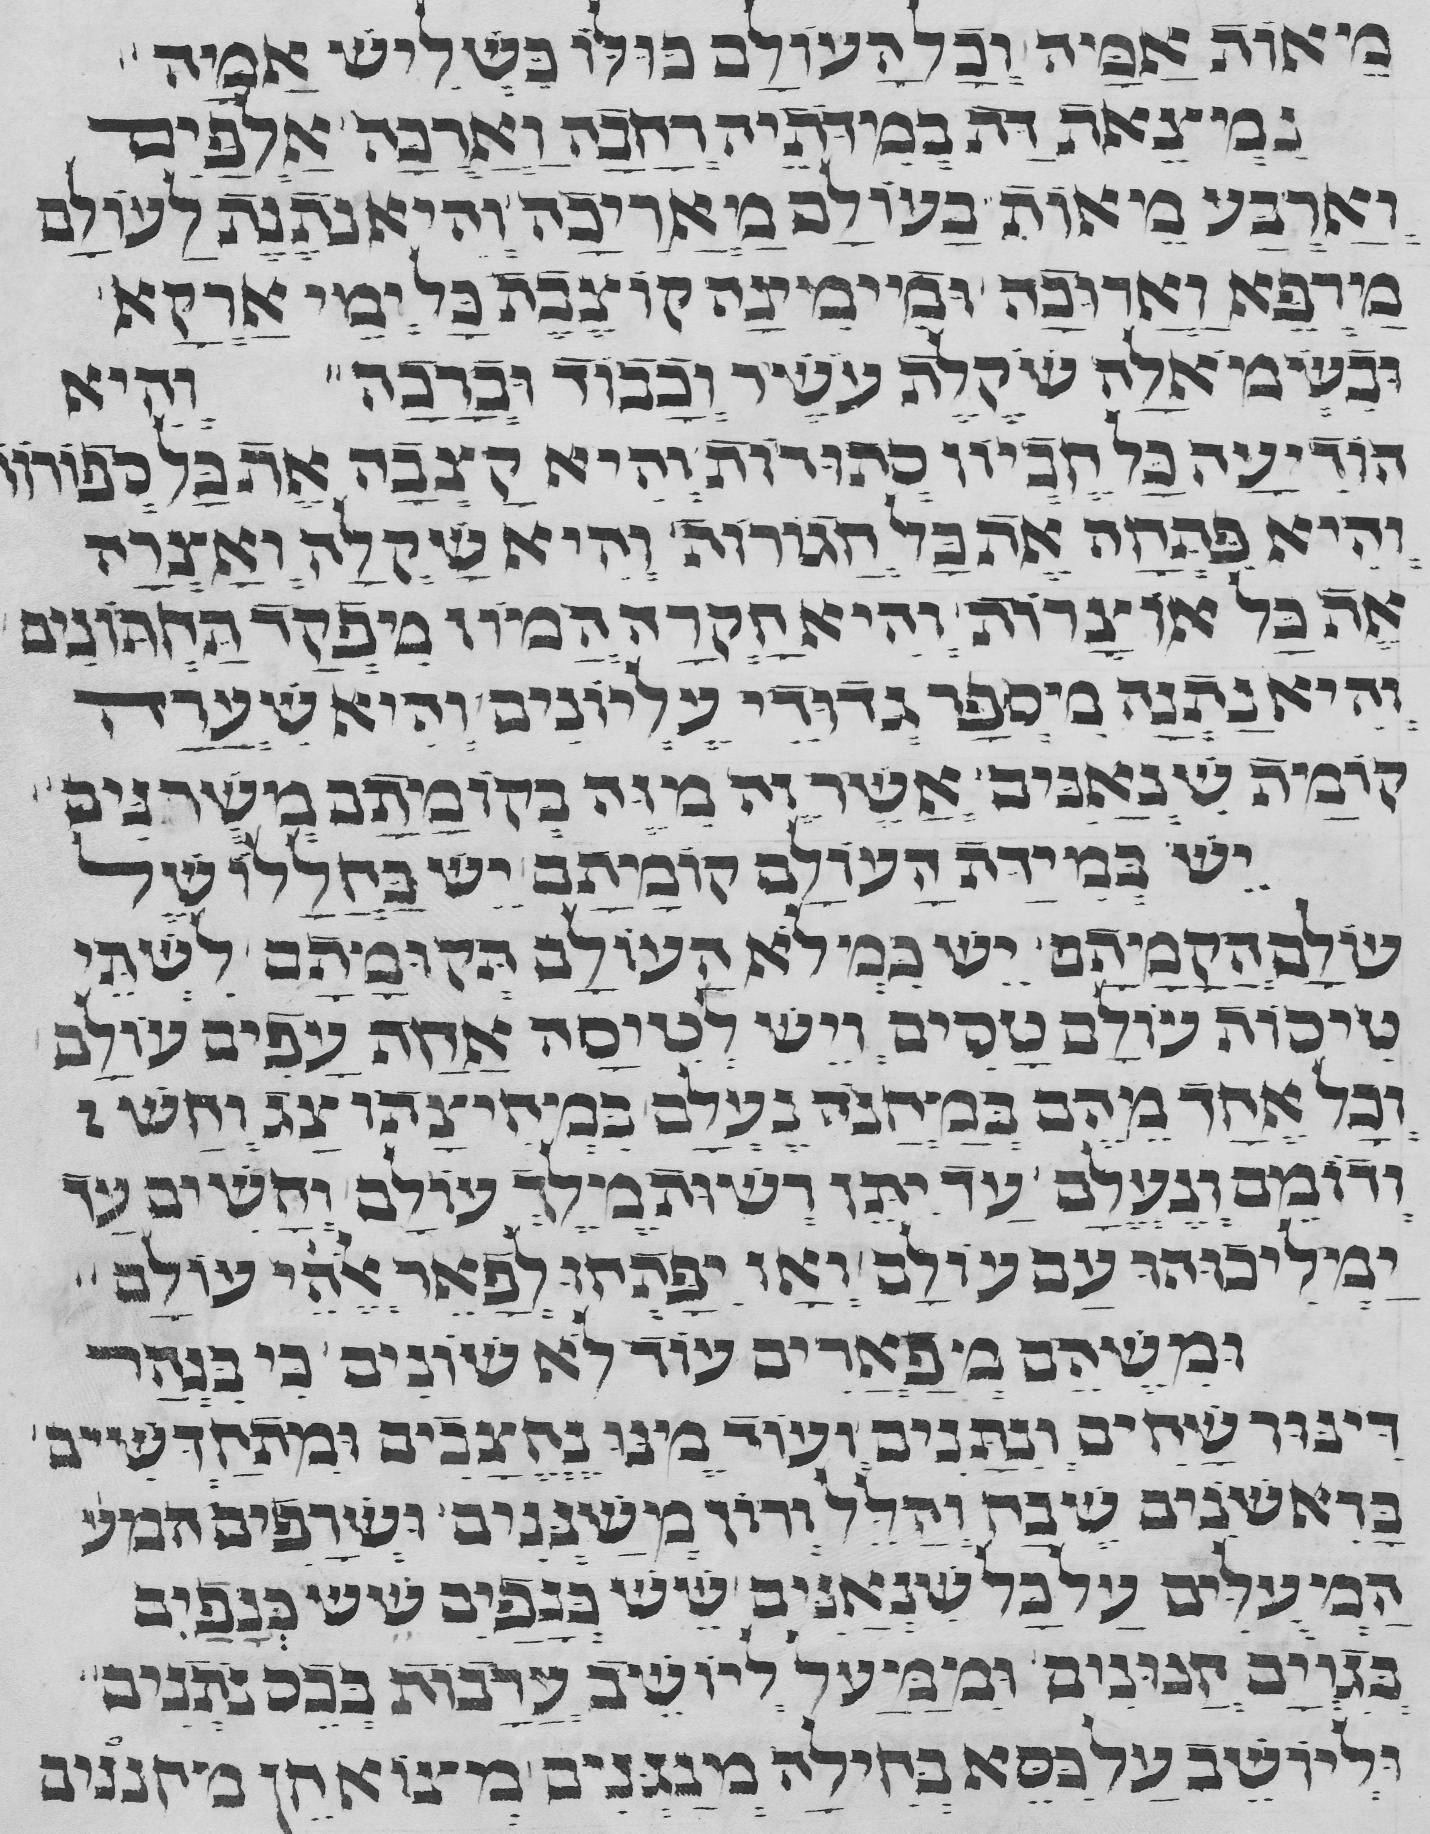 מֵיאוֹת אַמָּיה וְכָל הָעוֹלָם כּוּלּוֹ כִּשְׁלִישׁ אַמָּיה
נִמְיצֵאת דַּת בְּמִידּתָיה רְחָבָה וַאֲרֻכָּה אַלְפַּיִם
וְאַרְבַּע מֵיאוֹת כָּעוֹלָם מַאֲרִיכָה וְהִיא נֹתֶנֶת לָעוֹלָם
מַרְפֵּא וַאֲרוּכָה וּמִיֹמִינָה קוֹצֶבֶת כָּל יְמֵי אַרְקָא
וּבִשְׂמֹאלָה שׁקֶלֶת עֹשֶׁר וְכָבוֹד וּבְרָכָה וְהִיא
הוֹדִיעָה כָּל חֶבְיוֹן סְתוּרוֹת וְהִיא קָצְבָה אֶת כָּל סְפוֹרוֹת
וְהִיא פָּתְחָה אֶת כָּל חֲגוֹרוֹת וְהִיא שָׁקְלָה וְאָצְרָה
אֶת כָּל אוֹצָרוֹת וְהִיא חָקְרָה הֲמוֹן מִיפְקַד תַּחְתּוֹנִים
וְהִיא נָתְנָה מִיסְפַּר גְּדוּדֵי עֶלְיוֹנִים וְהִיא שִׁעֲרָה
קוֹמַת שִׁנְאַנִּים אֲשֶׁר זֶה מִזֶּה בְּקוֹמָתָם מְשֻׁרְנִּים
יֵשׁ כְּמִידַּת הָעוֹלָם קוֹמָתָם יֵשׁ כַּחֲלָלוֹ שֶׁל
עוֹלָם הֲקָמָתָם יֵשׁ כִּמְלֹא הָעוֹלָם הֲקוּמָתָם לִשְׁתֵּי
טִיסוֹת עוֹלָם טָסִים וְיֵשׁ לְטִיסָה אַחַת עָפִים עוֹלָם
וְכָל אֶחָד מֵהֶם בְּמַחֲנֶה נֶעְלָם בִּמְחִיצָתוֹ צָג וְחָשׁ
וְדוֹמֵם וְנֶעֱלָם עַד יִתֵּן רְשׁוּת מֶלֶךְ עוֹלָם וְחָשִׁים עַד
יַמְלִיכוּהוּ עַם עוֹלָם וְאָז יִפְתָּחוּ לְפָאֵר אֱלֹהֵי עוֹלָם
וּמִשֶּׁהֵם מְפָאֲרִים עוֹד לֹא שׁוֹנִים כִּי בִּנְהַר
דִּינּוּר שָׁחִים וְנִתָּנִים וְעוֹד מִנּוּ נֶחֱצָבִים וּמִתְחַדְּשִׁים
כָּרִאשׁוֹנִים שֶׁבַח וְהַלֵּל וְרוֹן מְשַׁנְּנִים וּשְׂרָפִים המע
הַמְיעֻלִּים עַל כָּל שִׁנְאַנִּים שֵׁשׁ כְּנָפַיִם שֵׁשׁ כְּנָפַיִם
בִּגְוִיָּם חֲנוּנִים וּמִמַּעַל לְיוֹשֵׁב עֲרָבוֹת בְּכֵס נְתָנִים
וּלְיוֹשֵׁב עַל כִּסֵּא בְּחִילָה מְנַגְּנִים מְצוֹא חֵן מְחַנְּנִים